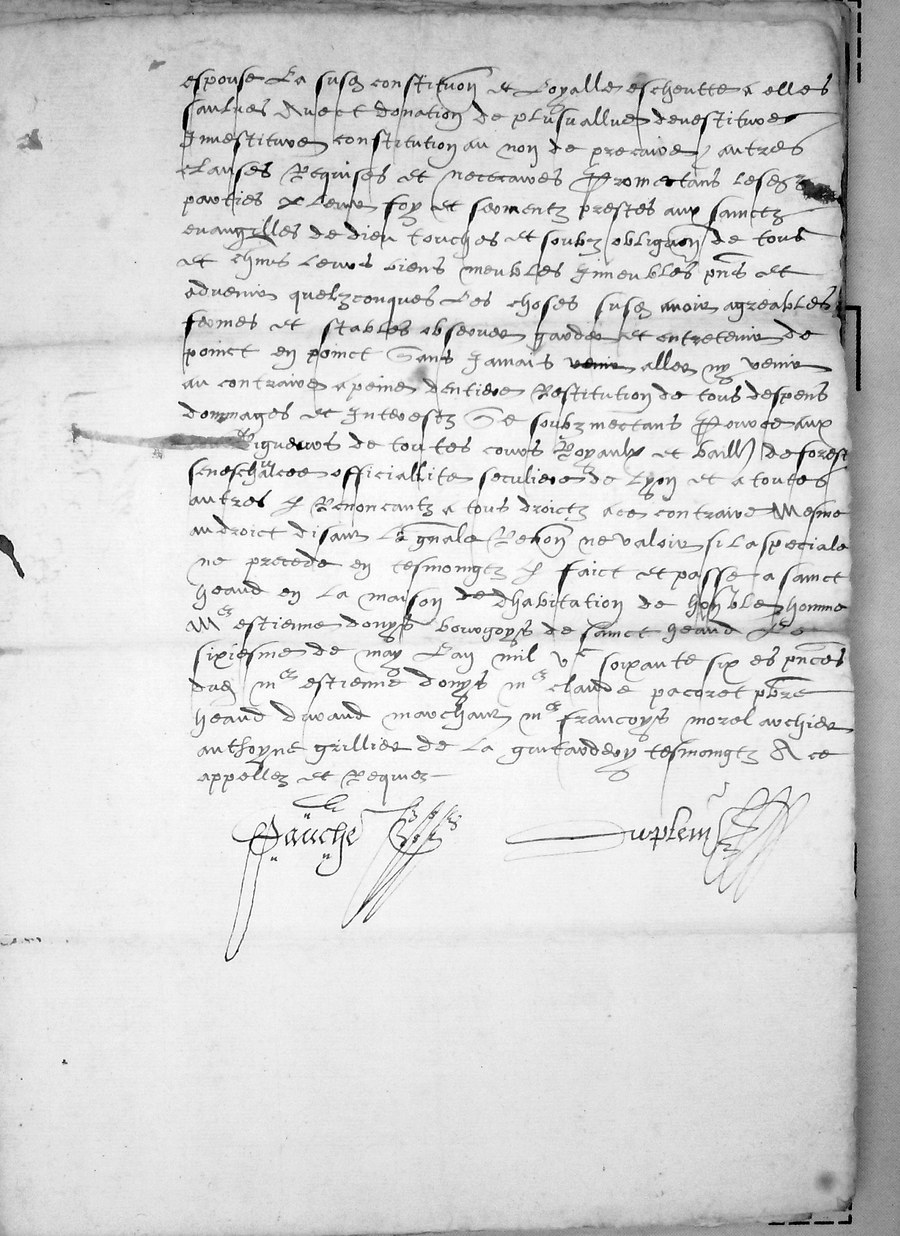 espouse La susd constitution et Loyalle escheutte a elles
saulves Avect donation de plusvallue devestitures
Investiture constitution au non de precaire / autres
clauses Requises et necessaires Promectans lesd
parties p Leurs foy et sermentz prestes aux sainctz
evangilles de dieu touches et soubz obligaon de tous
et chuns leurs biens meubles Immeubles pns et
advenir quelzconques Les choses susd avoir agreables
fermes et stables observer garder et entretenir de
poinct en poinct sans Jamais venir aller ny venir
au contraire a peine dentiere Restitution de tous despens
dommages et Interestz Se soubzmectans Pour ce aux
Rigueurs de toutes cours Royaulx et baill de forest
seneschalcee officiallite seculiere de Lyon et a toutes
autres Et Renoncantz a tous droictz a ce contraire Mesme
au droict disant La gnale Renon ne valoir si La speciale
ne precede en tesmoingtz Et faict et passe a sainct
heand en La maison de dhabitation de honble homme
Mr estienne donys bourgoys de sainct heand Le
sixiesme de may Lan mil vc soixante six es pnces
dud mre estienne donys mre claude pacoret pbre
heand durand marchant mre francoys morel archier
anthoyne grillier de La tesmoingtz A ce
appellez et Requiz
Gauche Duplein